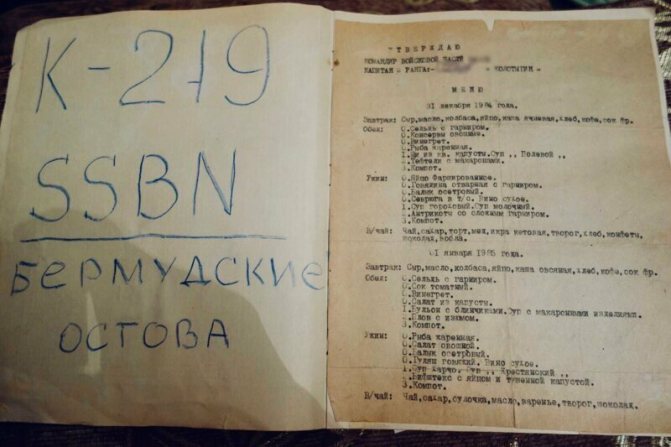 К-219
SSBN
БЕРМУДСКИЕ
ОСТОВА
УТВЕРЖДАЮ
КОМАНДИР ВОЙСКОВОЙ ЧАСТИ
КАПИТАН РАНГА:-
МЕНЮ
31 декабря 1984 года.
Завтрак: Сыр,масло,колбаса,яйцо,каша ячневая,хлеб,кофе,сок фр.
Обед: 0.Сельдь с гарниром.
0.Консервы овощные.
0.Винегрет.
0.Рыба жаренная.
1.Щи из кв. капусты.Суп ,, Полевой ,,
2.Тефтели с макаронами.
3.Компот.
Ужин: 0.Яйцо фаршированное.
0.Говядина отварная с гарниром.
0.Балык осетровый.
0.Севрюга в т/с. Вино сухое.
1.Суп гороховый.Суп молочный.
2.Антрикоты со сложным гарниром.
3.Компот.
В/чай: Чай,сахар,торт,мед,икра кетовая,творог,хлеб,конфеты,
шоколад,вобла.
01 января 1985 года.
Завтрак: Сыр,масло,колбаса,яйцо,каша овсяная,хлеб,кофе,сок фр.
Обед: 0.Сельдь с гарниром.
0.Сок томатный.
0.Винегрет.
0.Салат из капусты.
1.Бульон с блинчиками.Суп с макаронными изделиями.
2.Плов с изюмом.
3.Компот.
Ужин: 0.Рыба жаренная.
0.Салат овощной.
0.Балык осетровый.
0.Гуляш говяжий. Вино сухое.
1.Суп харчо. Суп ,, Крестянский ,,
2.Бифштекс с яйцом и тушеной капустой.
3.Компот.
В/чай: Чай,сахар,булочка,масло,варенье,творог,шоколад.